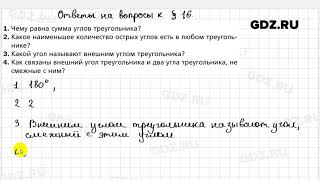 Ответы на вопросы к § 16
GDZ.RU
1. Чему равна сумма углов треугольника?
2. Какое наименьшее количество острых углов есть в любом треуголь-
нике?
3. Какой угол называют внешним углом треугольника?
4. Как связаны внешний угол треугольника и два угла треугольника, не
смежные с ним?
1 180°,
2 2
3. Внешним углом треугольника называют угол,
смежный с этим углом